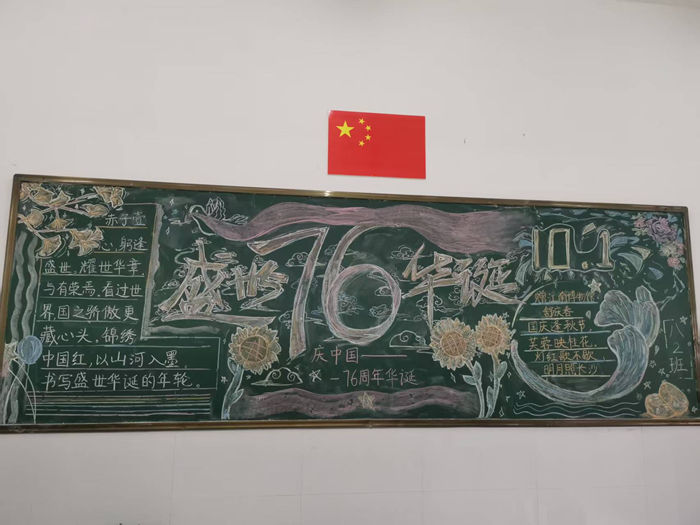 赤子壹
心,躬逢
盛世,耀世华章,
与有荣焉,看过世
界国之骄傲更
藏心头,锦绣
中国红,以山河入墨,
书写盛世华诞的年轮。
盛世76华诞
庆中国——
—76周年华诞
10.1
国庆逢秋节
芙蓉映桂花
灯红歌不歇
明月照长沙
2班